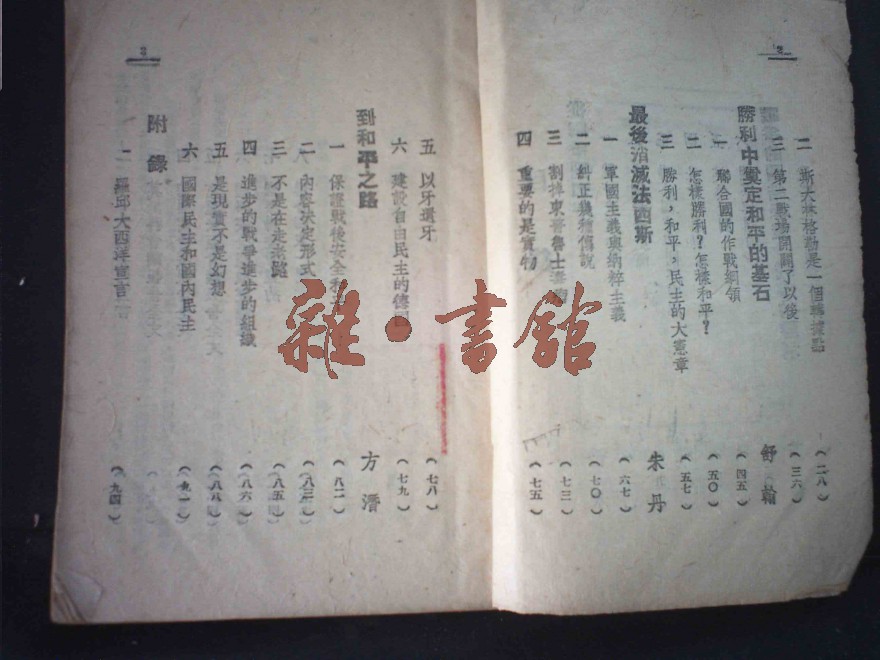 2
二 斯大林格勒是一個轉捩點 (二八)
三 第二戰場開闢了以後 (三六)
勝利中奠定和平的基石 舒翰
一 聯合國的作戰綱領 (四五)
二 怎樣勝利?怎樣和平? (五〇)
三 勝利,和平,民主的大憲章 (五七)
最後消滅法西斯 朱丹
一 軍國主義與納粹主義 (六七)
二 糾正幾種傳說 (七〇)
三 割掉東普魯士 (七三)
四 重要的是實物 (七五)
五 以牙還牙 (七八)
六 建設自由民主的德國 (七九)
到和平之路 方潛
一 保證戰後安全和 (八二)
二 內容決定形式 (八三)
三 不是在走老路 (八五)
四 進步的戰爭進步的組織 (八六)
五 是現實不是幻想 (八八)
六 國際民主和國內民主 (九一)
附錄
羅邱大西洋宣言 (九四)
雜·書館